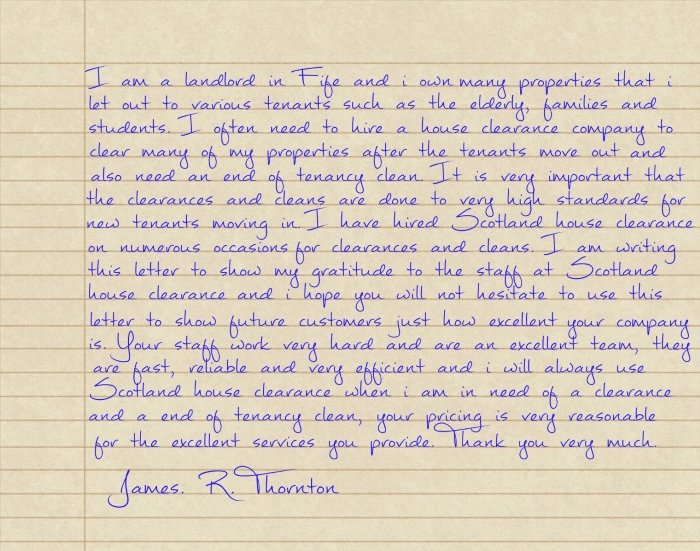 I am a landlord in Fife and i own many properties that i
let out to various tenants such as the elderly, families and
students. I often need to hire a house clearance company to
clear many of my properties after the tenants move out and
also need an end of tenancy clean. It is very important that
the clearances and cleans are done to very high standards for
new tenants moving in. I have hired Scotland house clearance
on numerous occasions for clearances and cleans. I am writing
this letter to show my gratitude to the staff at Scotland
house clearance and i hope you will not hesitate to use this
letter to show future customers just how excellent your company
is. Your staff work very hard and are an excellent team, they
are fast, reliable and very efficient and i will always use
Scotland house clearance when i am in need of a clearance
and a end of tenancy clean, your pricing is very reasonable
for the excellent services you provide. Thank you very much.
James. R. Thornton